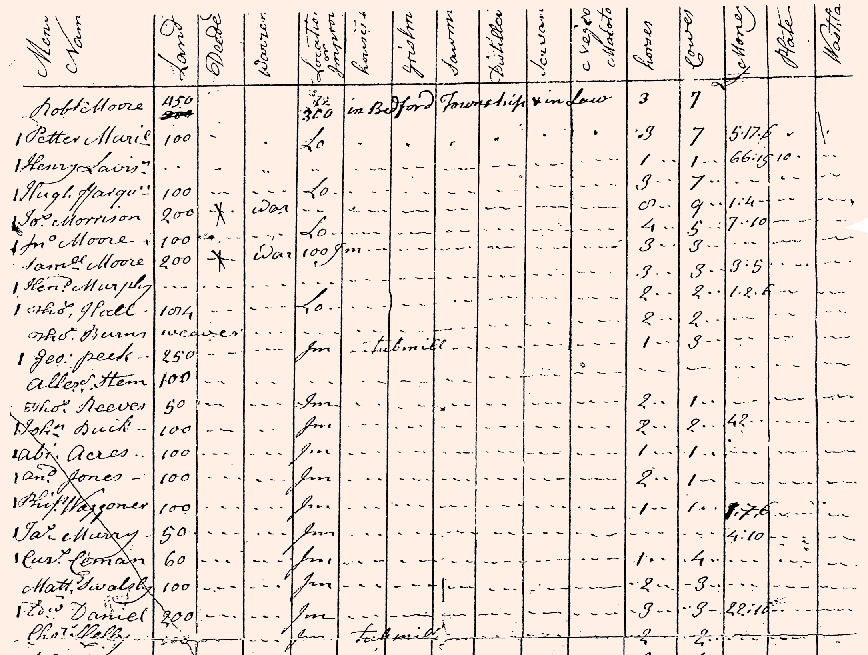 Mens Nam Land Deede Warren Location or Improv houses Gristm Sawm Distiller Servan Negro Molato horses Cowes Money Plate Wastla
Robt Moore 450 300 in Bedford Township & in Law 3 7
1 Petter Murie 100 Lo 3 7 5.17.6
1 Henry Lavis 1 1 66.15 10
1 Hugh 100 Lo 3 7
1 Jos Morrison 200 War 8 9 1.4
1 Jno Moore 100 Lo 4 5 7.10
Samll Moore 200 War 100 Jm 3 3
1 Henr Murphy 3 3 3.5
1 Thos Hall 104 Lo 2 2 1.2.6
Thos Burns weaver 2 2
1 Geo: peck 250 Jm tubmill 1 3
Allexr Stem 100
Thos Reeves 50 Jm 2 1
1 John Buck 100 Jm 2 2 42
1 abi Acres 100 Jm 1 1
1 and Jones 100 Jm 2 1
1 Waggoner 100 Jm 1 1 1.7.6
1 Jas Murry 50 Jm 4.10
1 Curs Coman 60 Jm 1 4
Matt Swalsby 100 Jm 2 3
1 Daniel 200 Jm 3 3 22.10
Jm tubmill 2 2